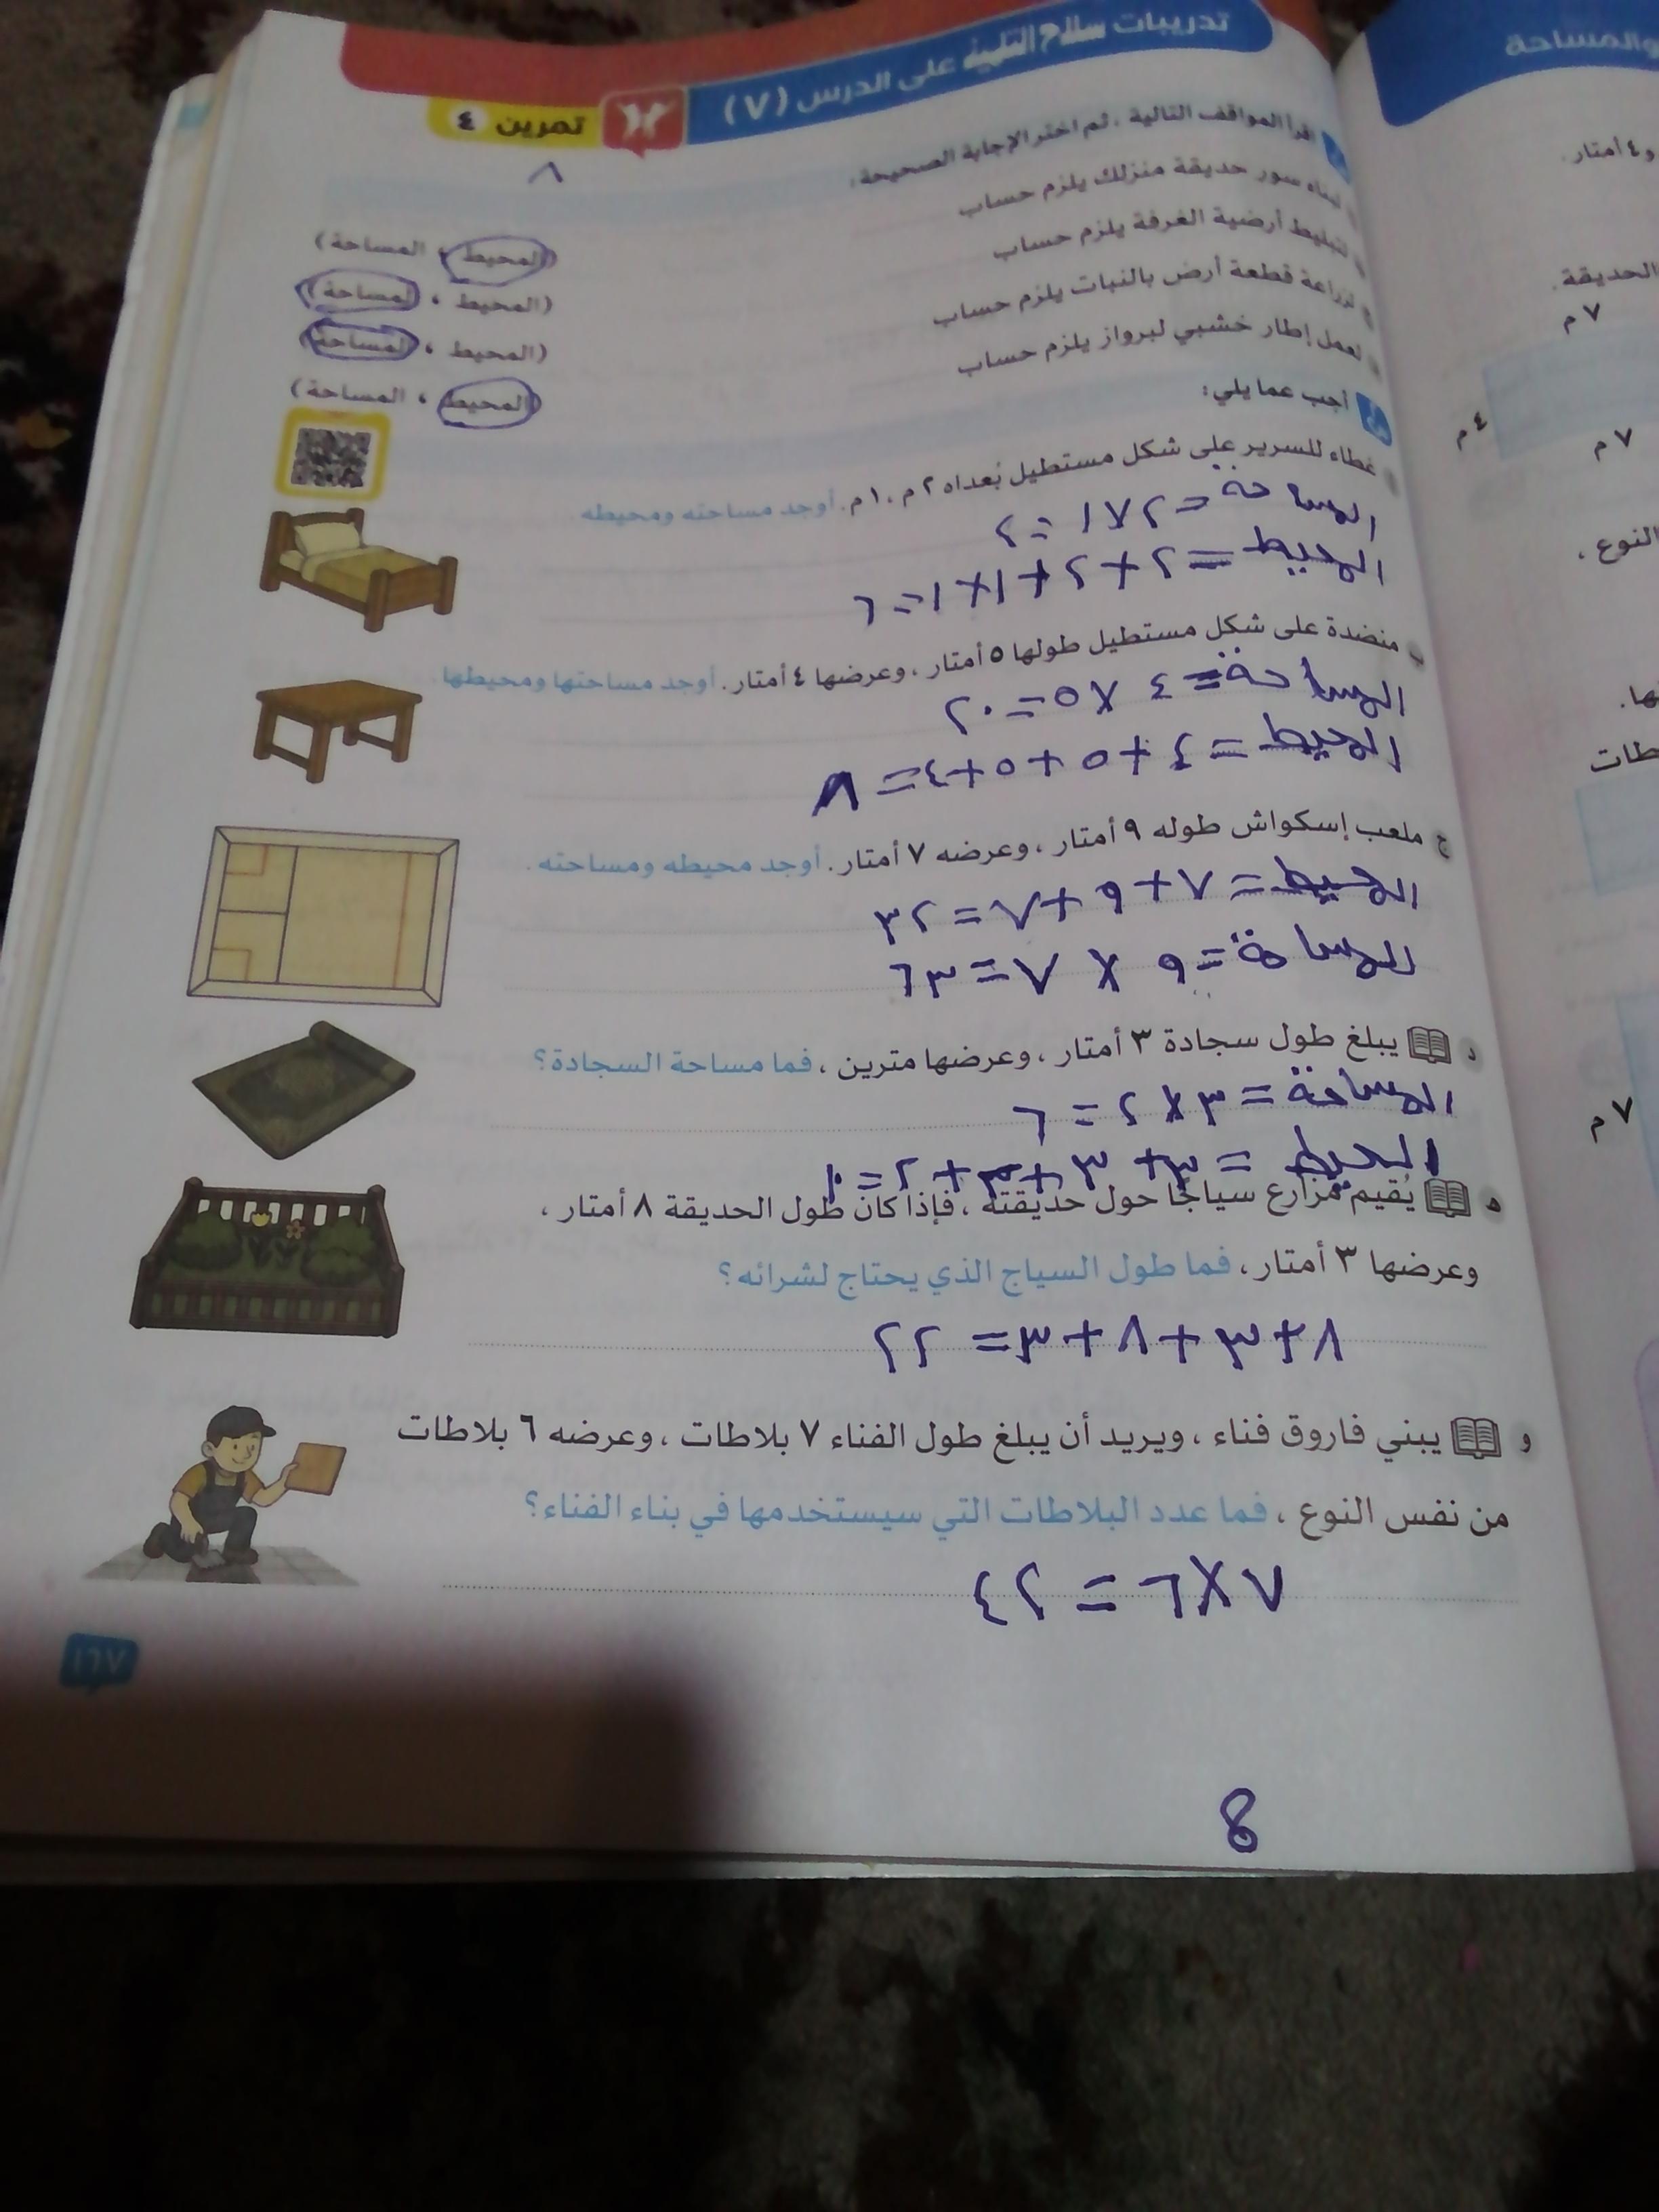 تدريبات سلاح التلميذ على الدرس (٧)
١٢ تمرين ٤
٨
اقرأ المواقف التالية ، ثم اختر الإجابة الصحيحة:
لبناء سور حديقة منزلك يلزم حساب (المحيط ، المساحة)
لتبليط أرضية الغرفة يلزم حساب (المحيط ، المساحة)
لزراعة قطعة أرض بالنبات يلزم حساب (المحيط ، المساحة)
لعمل إطار خشبي لبرواز يلزم حساب (المحيط ، المساحة)
أجب عما يلي:
غطاء للسرير على شكل مستطيل بُعداه ٢ م ، ١ م. أوجد مساحته ومحيطه.
المساحة = ٢ × ١ = ٢
المحيط = ٢ + ٢ + ١ + ١ = ٦
ب منضدة على شكل مستطيل طولها ٥ أمتار ، وعرضها ٤ أمتار. أوجد مساحتها ومحيطها.
المساحة = ٤ × ٥ = ٢٠
المحيط = ٤ + ٥ + ٥ + ٤ =
ج ملعب إسكواش طوله ٩ أمتار ، وعرضه ٧ أمتار. أوجد محيطه ومساحته.
المحيط = ٧ + ٩ + ٧ = ٣٢
المساحة = ٩ × ٧ = ٦٣
د يبلغ طول سجادة ٣ أمتار ، وعرضها مترين ، فما مساحة السجادة؟
المساحة = ٣ × ٢ = ٦
المحيط = ٣ + ٢ = ١٠
ه يُقيم مزارع سياجًا حول حديقته ، فإذا كان طول الحديقة ٨ أمتار ،
وعرضها ٣ أمتار ، فما طول السياج الذي يحتاج لشرائه؟
٨ + ٣ + ٨ + ٣ = ٢٢
و يبني فاروق فناء ، ويريد أن يبلغ طول الفناء ٧ بلاطات ، وعرضه ٦ بلاطات
من نفس النوع ، فما عدد البلاطات التي سيستخدمها في بناء الفناء؟
٧ × ٦ = ٤٢
١٦٧
8
والمساحة
و٤ أمتار.
الحديقة.
٧ م
٤ م
٧ م
النوع ،
ها.
طات
٧ م